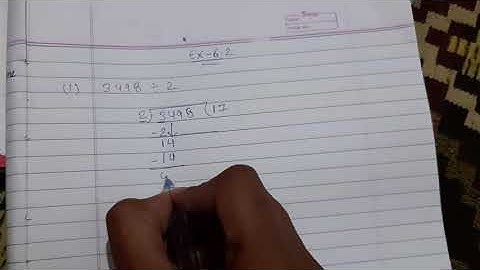 Ex-6.2
(1) 3498 ÷ 2
2) 3498 (17
-2↓
14
-14